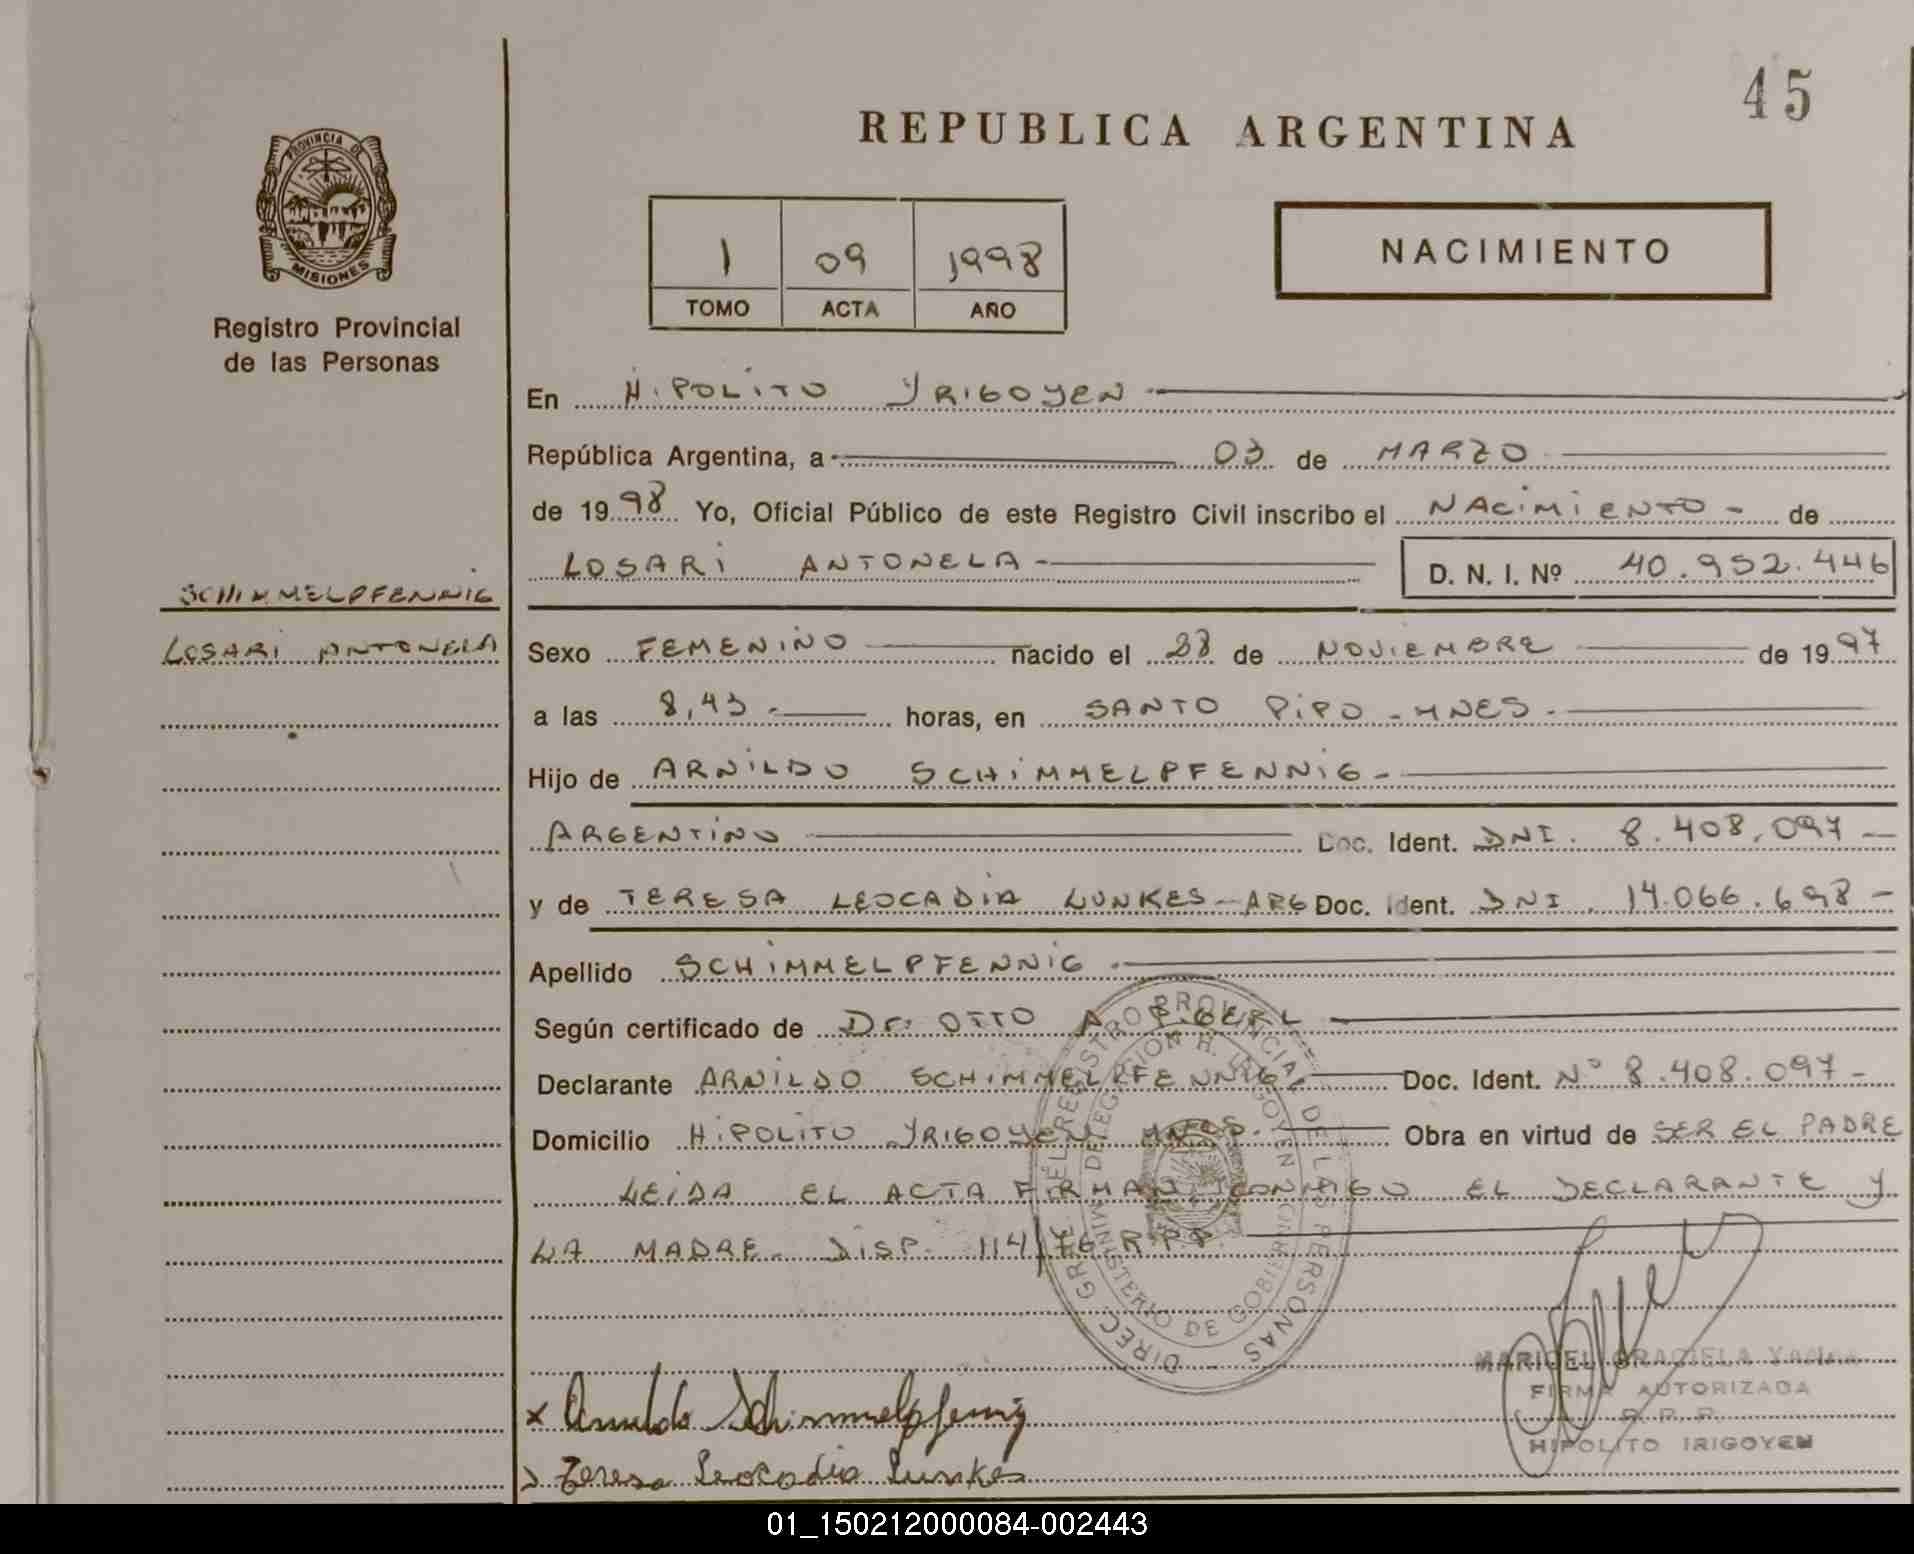 45
REPUBLICA ARGENTINA
PROVINCIA DE
MISIONES
Registro Provincial
de las Personas
1 09 1998
TOMO ACTA AÑO
NACIMIENTO
En HIPOLITO YRIGOYEN
República Argentina, a 03 de MARZO
de 1998 Yo, Oficial Público de este Registro Civil inscribo el NACIMIENTO - de
LOSARI ANTONELA - D. N. I. Nº 40.952.446
SCHIMMELPFENNIG
LOSARI ANTONELA
Sexo FEMENINO nacido el 28 de NOVIEMBRE de 1997
a las 8,43 - horas, en SANTO PIPO - MNES -
Hijo de ARNILDO SCHIMMELPFENNIG -
ARGENTINO Doc. Ident. DNI. 8.408.097 -
y de TERESA LEOCADIA LUNKES - ARG Doc. Ident. DNI. 14.066.698 -
Apellido SCHIMMELPFENNIG -
Según certificado de Dr. OTTO A
Declarante ARNILDO SCHIMMELPFENNIG - Doc. Ident. Nº 8.408.097 -
Domicilio HIPOLITO YRIGOYEN MNES. Obra en virtud de SER EL PADRE
LEIDA EL ACTA FIRMAN CONMIGO EL DECLARANTE Y
LA MADRE - DISP. 114/76 R.P.P.
DIREC. GRAL. DEL REGISTRO PROVINCIAL DE LAS PERSONAS
MINISTERIO DE GOBIERNO
DELEGACION H. IRIGOYEN
x Arnildo Schimmelpfennig
Teresa Leocadia Lunkes
MARICEL GRACIELA
FIRMA AUTORIZADA
R. P. P.
HIPOLITO IRIGOYEN
01_150212000084-002443